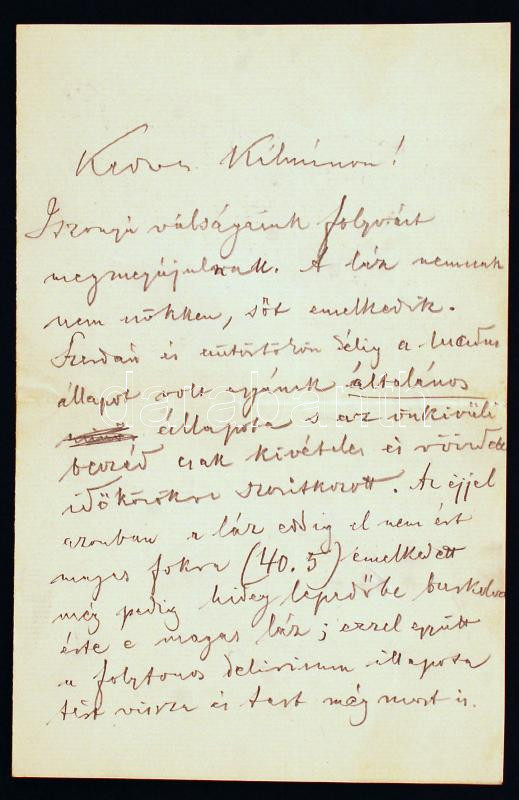 Kedves Kálmánom!
Iszonyú válságaink folyvást
megmegújulnak. A láz nemcsak
nem csökken, sőt emelkedik.
Szerdán és csütörtökön délig a lucidus
állapot volt apjának általános
állapota s az önkívüli
beszéd csak kivételes és rövidebb
időközökre szorítkozott. Az éjjel
azonban a láz eddig el nem ért
magas fokra (40.5) emelkedett
még pedig hideg lepedőbe burkolva
érte e magas láz; ezzel együtt
a folytonos delirium állapota
tért vissza és tart még most is.
darabanth